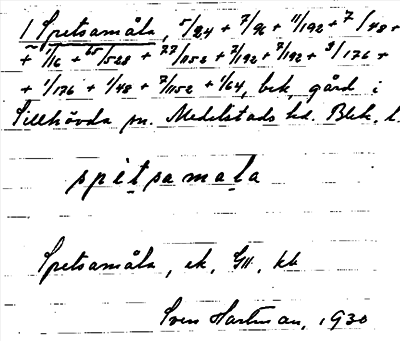 1 Spetsamåla, 5/24 + 7/96 + 11/192 + 7/48 +
+ 1/16 + 65/528 + 77/1152 + 7/192 + 7/192 + 9/176 +
+ 1/176 + 1/48 + 7/1152 + 1/64, bek. gård i
Tillhövda sn. Medelstads hd. Blek. l.
spitsamala
Spetsamåla, ek, GII, kb
Sven Hartman, 1930